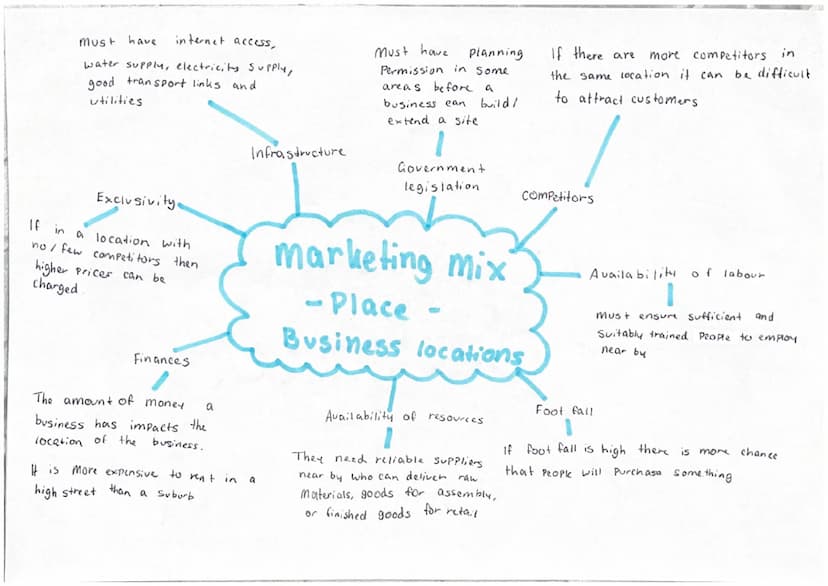 marketing mix
- Place -
Business locations
Infrastructure
Must have internet access,
water supply, electricity supply,
good transport links and
utilities
Government
legislation
Must have planning
Permission in some
areas before a
business can build/
extend a site
Competitors
If there are more competitors in
the same location it can be difficult
to attract customers
Availability of labour
Must ensure sufficient and
suitably trained People to employ
near by
Foot fall
If foot fall is high there is more chance
that people will purchase something
Availability of resources
They need reliable suppliers
near by who can deliver raw
Materials, goods for assembly,
or finished goods for retail
Finances
The amount of money a
business has impacts the
location of the business.
It is more expensive to rent in a
high street than a suburb
Exclusivity
If in a location with
no/few competitors then
higher prices can be
charged